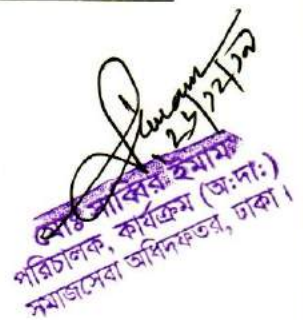 ২১/১২/১৭
মোঃ সাব্বির ইমাম
পরিচালক, কার্যক্রম (অ:দা:)
সমাজসেবা অধিদফতর, ঢাকা।